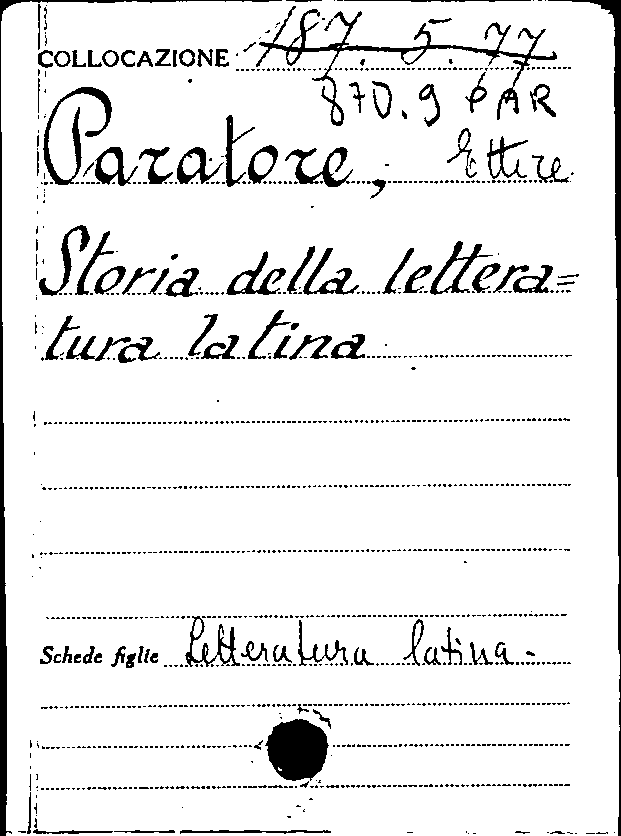 COLLOCAZIONE 187. 5. 77
870.9 PAR
Paratore, Ettore
Storia della lettera=
tura latina
Schede figlie Letteratura latina -